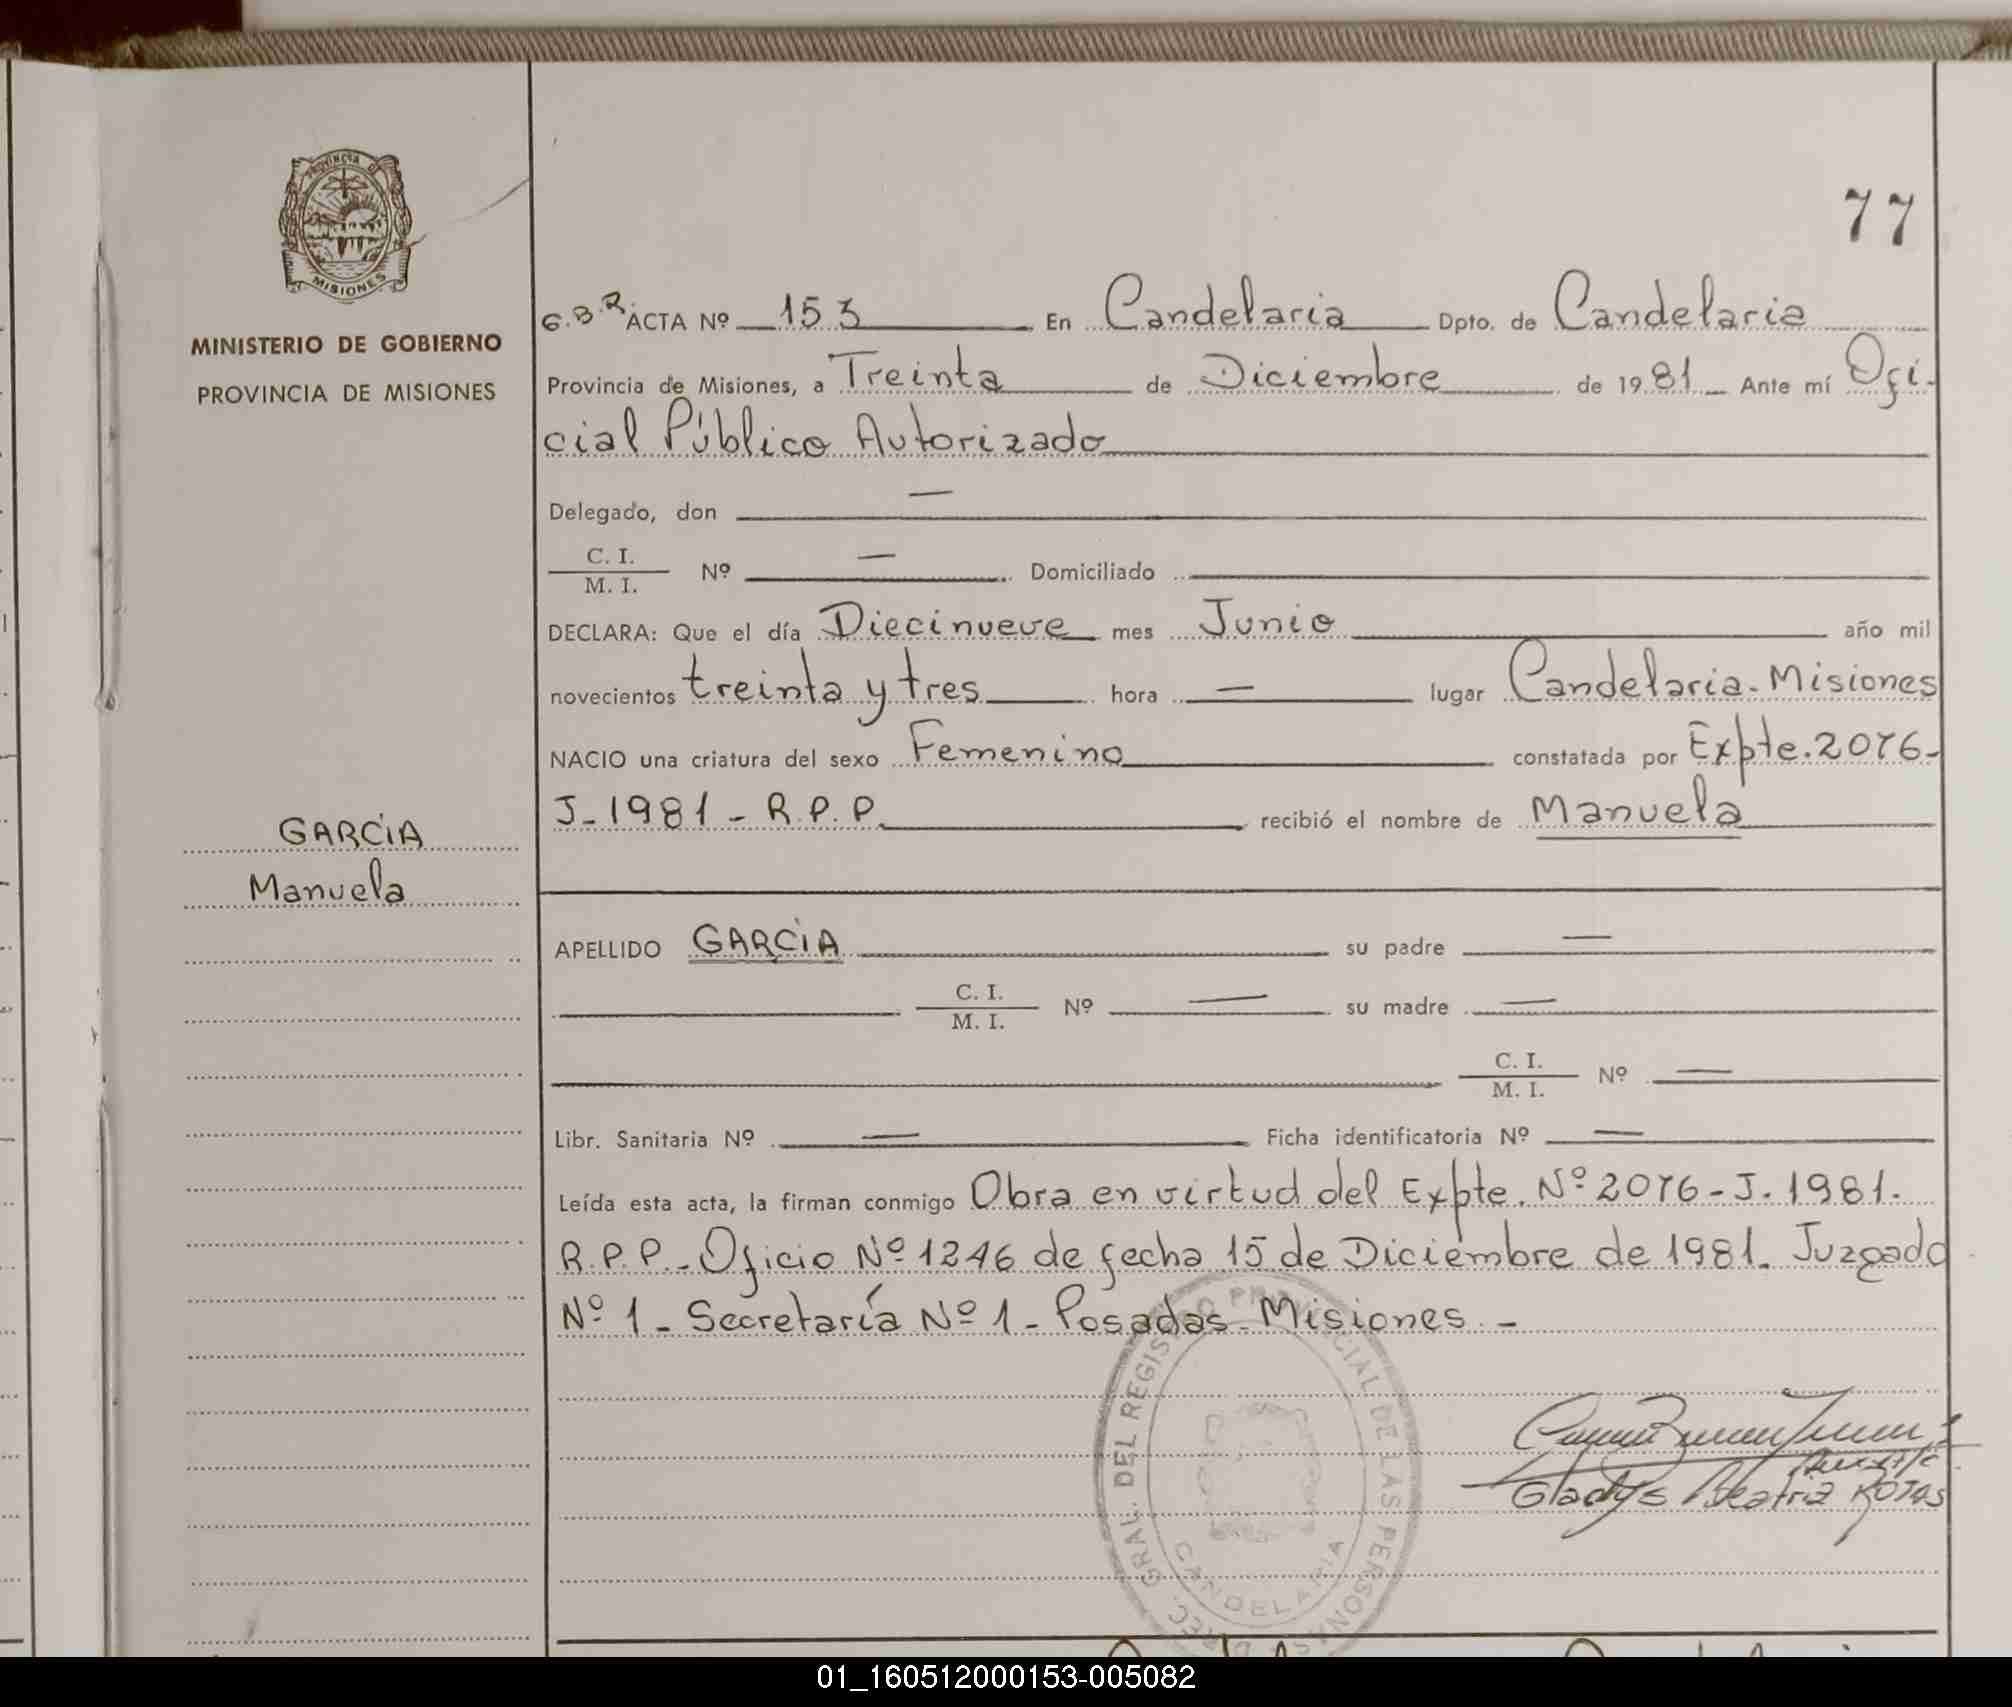 PROVINCIA DE
MISIONES
MINISTERIO DE GOBIERNO
PROVINCIA DE MISIONES
GARCÍA
Manuela
77
G.B.R ACTA Nº 153 En Candelaria Dpto. de Candelaria
Provincia de Misiones, a Treinta de Diciembre de 1981 Ante mí Ofi-
cial Público Autorizado
Delegado, don —
C. I.
M. I. Nº — Domiciliado
DECLARA: Que el día Diecinueve mes Junio año mil
novecientos treinta y tres hora — lugar Candelaria-Misiones
NACIO una criatura del sexo Femenino constatada por Expte. 2076-
J-1981-R.P.P. recibió el nombre de Manuela
APELLIDO GARCÍA su padre —
C. I.
M. I. Nº — su madre —
C. I.
M. I. Nº —
Libr. Sanitaria Nº — Ficha identificatoria Nº —
Leída esta acta, la firman conmigo Obra en virtud del Expte. Nº 2076-J-1981-
R.P.P.-Oficio Nº 1246 de fecha 15 de Diciembre de 1981. Juzgado
Nº 1-Secretaría Nº 1-Posadas-Misiones.-
DIREC. GRAL. DEL REGISTRO PROVINCIAL DE LAS PERSONAS
CANDELARIA
Gladys Beatriz Rojas
01_160512000153-005082